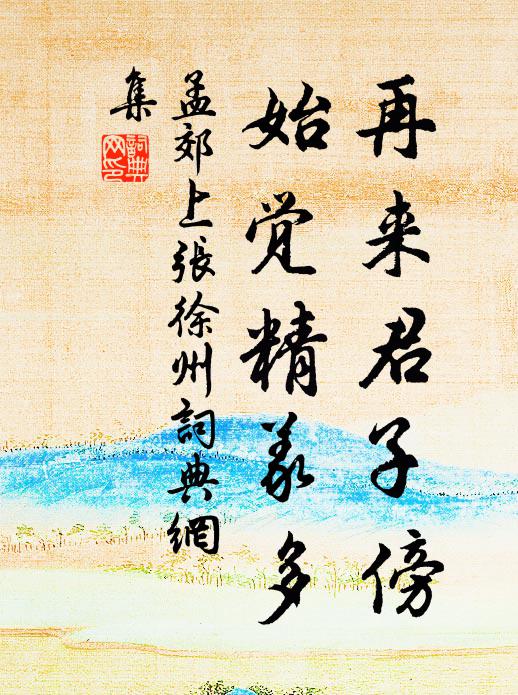 再来君子傍
始觉精義多
孟郊上張徐州詞典網
集
詞典
网印